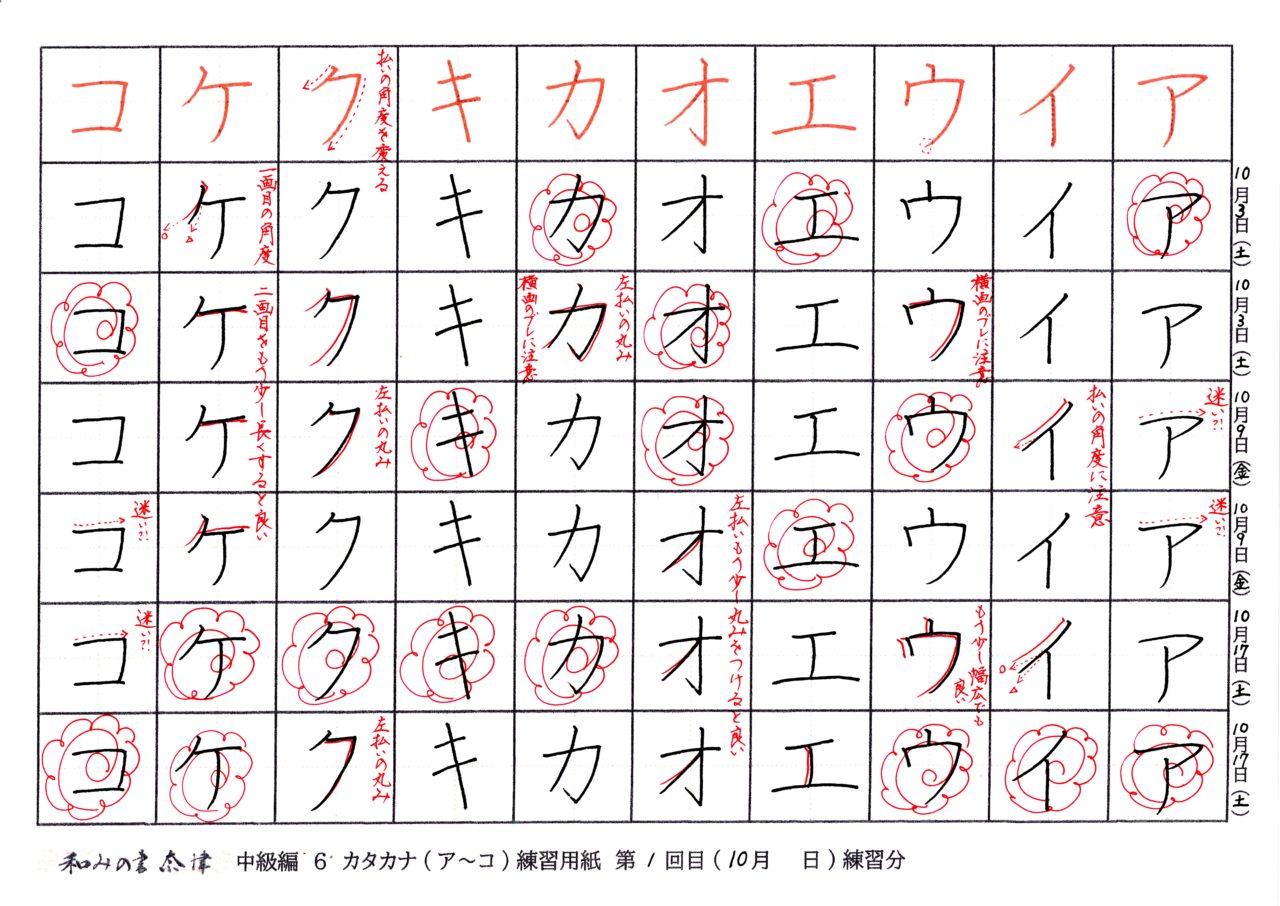 アイウエオカキクケコ
払いの角度を変える
10月3日(土)
アイウエオカキクケコ
一画目の角度
10月3日(土)
アイウエオカキクケコ
横画のブレに注意
左払いの丸み
横画のブレに注意
二画目をもう少し長くすると良い
10月9日(金)
アイウエオカキクケコ
迷い?!
払いの角度に注意
左払いの丸み
10月9日(金)
アイウエオカキクケコ
迷い?!
左払いもう少し丸みをつけると良い
迷い?!
10月17日(土)
アイウエオカキクケコ
もう少し幅広でも良い
迷い?!
10月17日(土)
アイウエオカキクケコ
左払いの丸み
和みの書 奈津 中級編 6 カタカナ(ア~コ)練習用紙 第 1 回目(10月 日)練習分